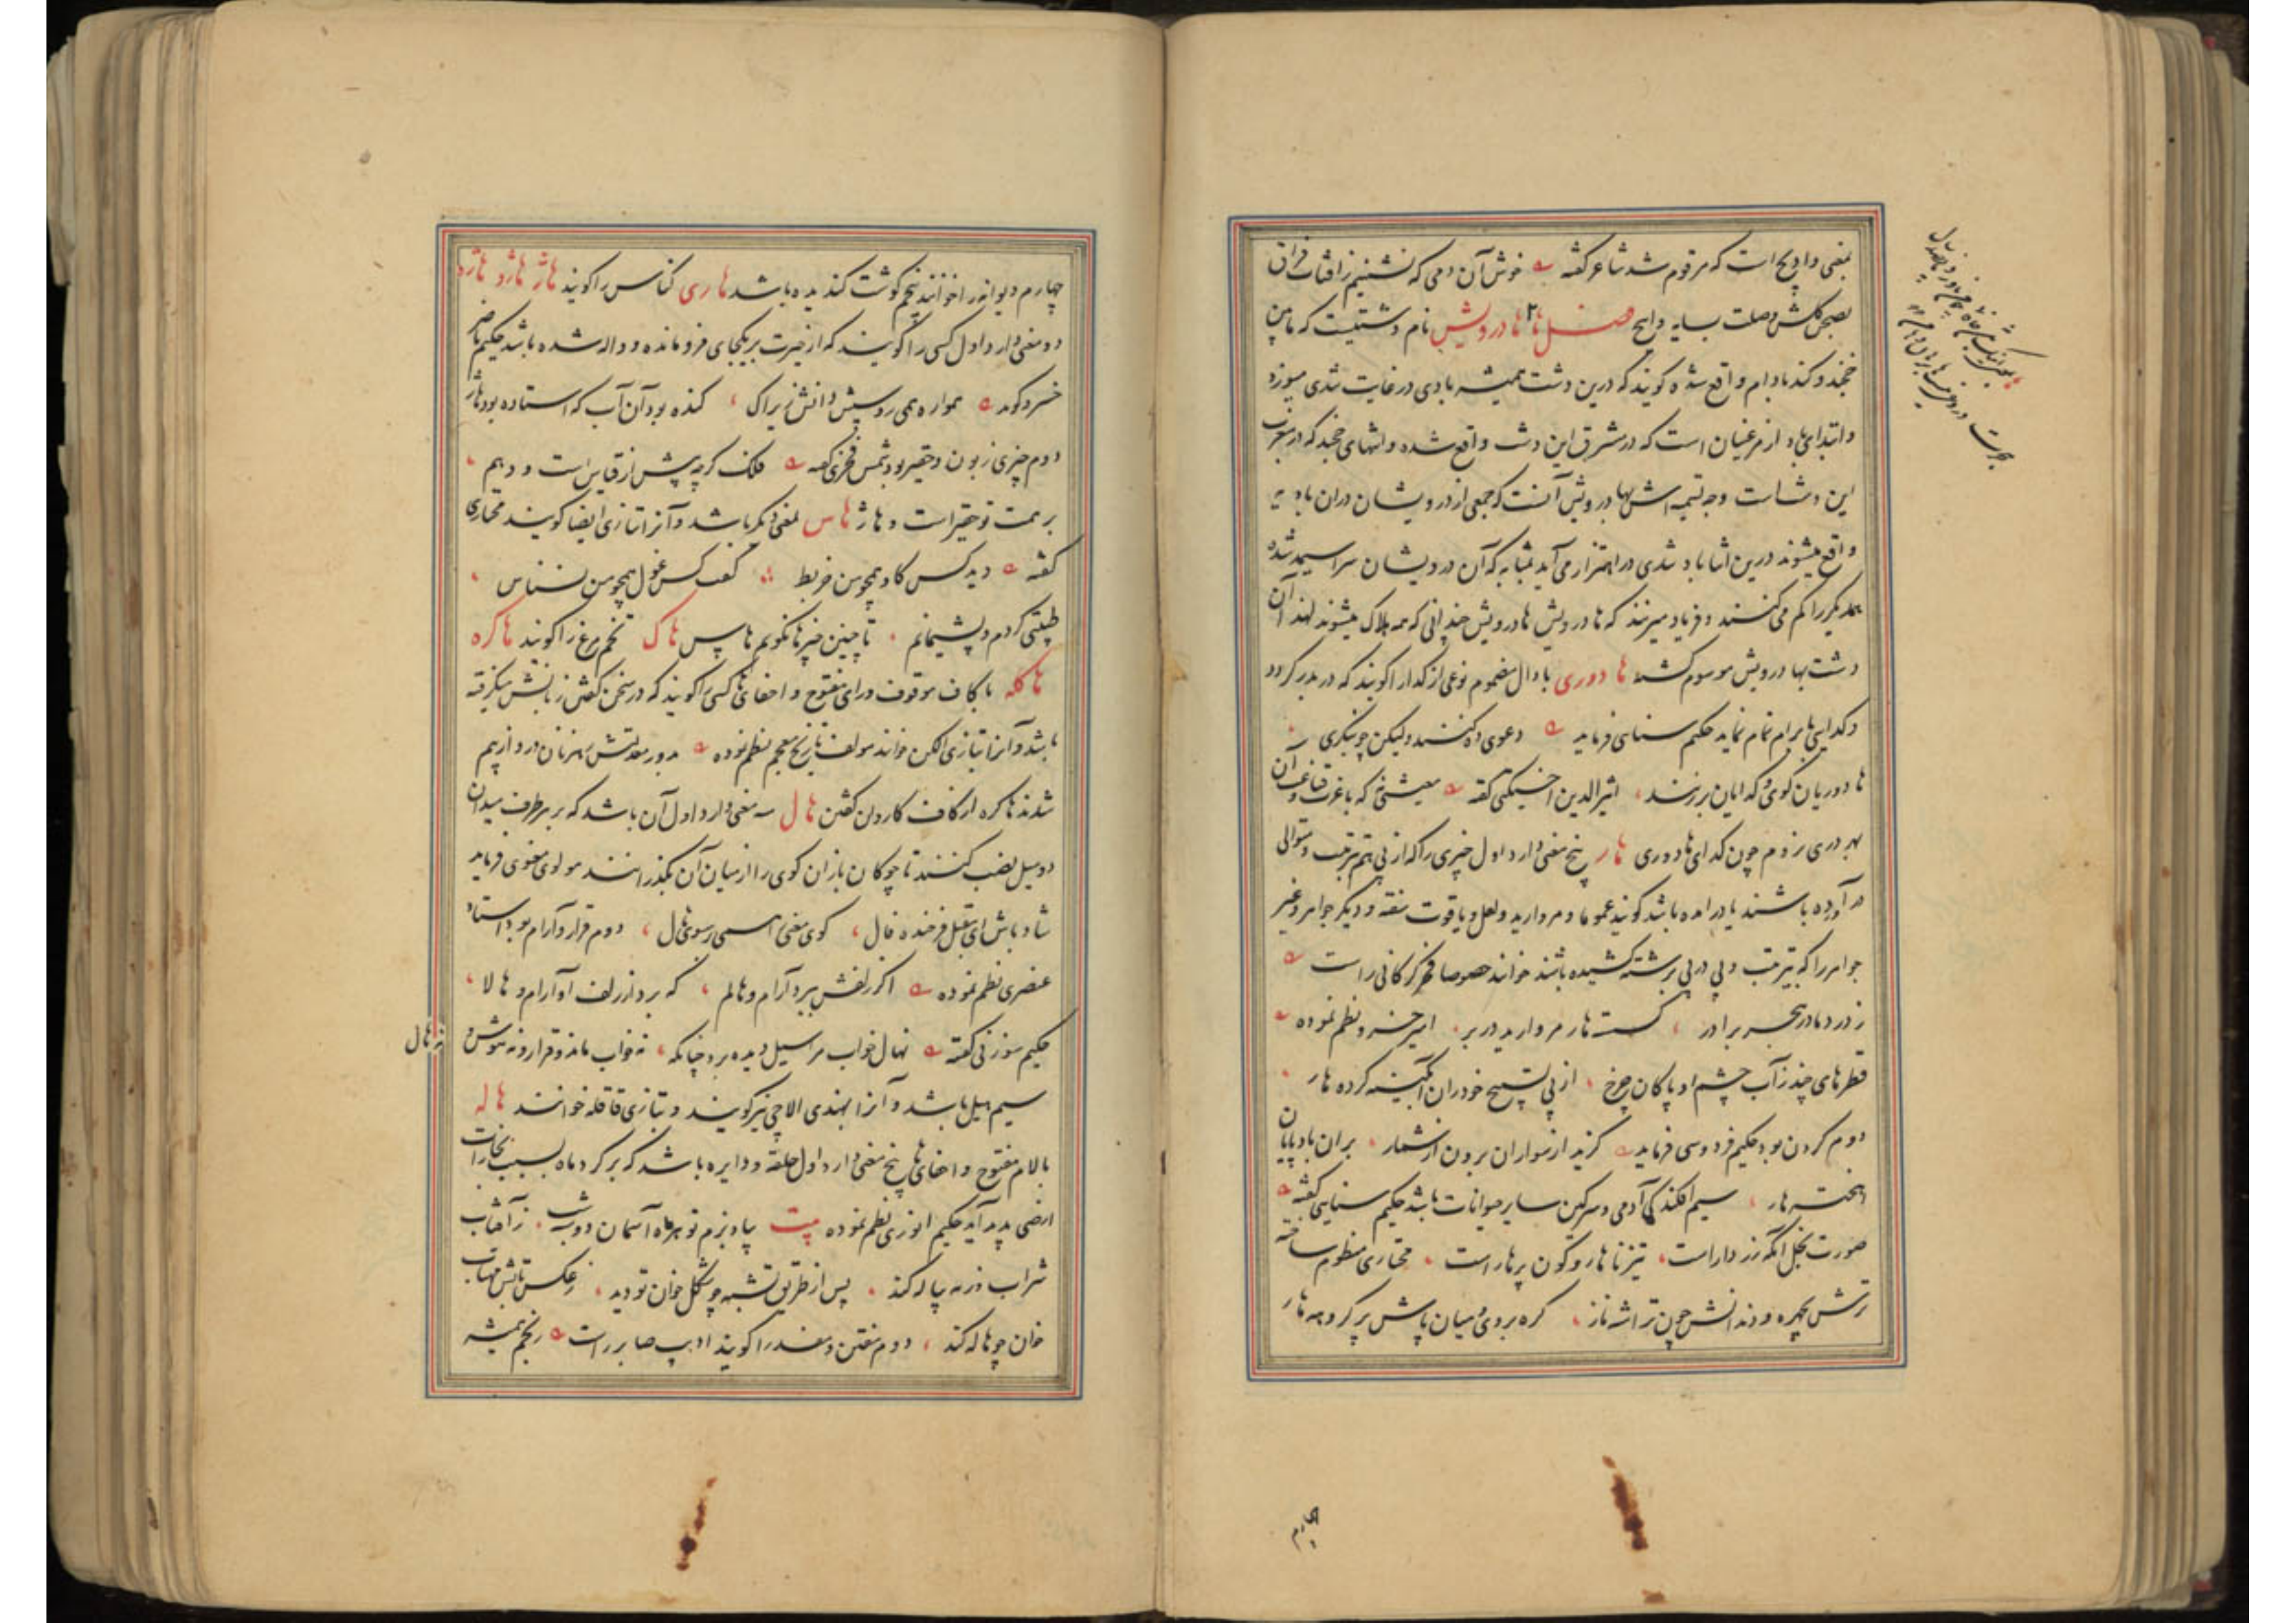 بمعنی داوپح است که مرقوم شد شاعر گفته خوش آن دمی که نشینم ز افتاب فراق
بصحن گلشن وصلت بسایه داپح فصل ها هادرویش نام دشتیست که مابین
خجند و کند بادام واقع شده گویند که درین دشت همیشه بادی در غایت تندی میوزد
و ابتدای باد از مرغنیان است که در مشرق این دشت واقع شده و انتهای خجند که در مغرب
این دشت است وجه تسمیه اش بهادرویش آنست که جمعی از درویشان دران بادیه
واقع میشوند درین اثنا باد تندی در اهتزاز می آید بمثابه که آن درویشان سراسیمه شده
همدیگر را گم می کنند و فریاد میزنند که هادرویش هادرویش چندانی که همه هلاک میشوند لهذا آن
دشت بهادرویش موسوم گشته هادوری با دال مضموم نوعی از گدا را گویند که در بدر گردد
و گدایی بابرام تمام نماید حکیم سنایی فرماید دعوی ده کنند ولیکن چو بنگری
هادوریان کوی و گدایان برزنند اثیرالدین اخسیکتی گفته معیشتی که باعزت و قناعت آن
بهر دری نزدم چون گدای هادوری هار پنج معنی دارد اول چیزی را که از پی هم بترتیب و متوالی
در آورده باشند یا درامده باشد گویند عموما و مروارید و لعل و یاقوت سفته و دیگر جواهر و غیر
جواهر را که بترتیب و پی در پی برشته کشیده باشند خوانند خصوصا فخر گرگانی راست
ز درد مادر و هجر برادر گسسته هار مروارید در بر امیر خسرو نظم نموده
قطرهای چند ز آب چشم او پاکان چرخ از پی تسبیح خود ران آبگینه کرده هار
دوم گردن بود حکیم فردوسی فرماید گزید از سواران برون از شمار بران بادپایان
اهخته هار سیم افکندگی آدمی و سرگین سایر حیوانات باشد حکیم سنایی گفته
صورت بخل انکه زردار است تیز ناهار و کون پرهار است مختاری منظوم ساخته
ترشش چهره و دندانش چون تراشه ناز گره بروی و میان پاش پر گره هار
چهارم
چهارم دیوانه را خوانند پنجم گوشت گندیده باشد هاری کناس را گویند هاژ هاژد هاژه
دو معنی دارد اول کسی را گویند که از حیرت بر یکجای فرومانده و واله شده باشد حکیم ناصر
خسرو گوید همواره همی رو سپس دانش زیراک گنده بود آن آب که استاده بود هاژ
دوم چیزی زبون و حقیر بود شمس فخری گفته فلک گرچه پیش از قیاس است و وهم
بر همت تو حقیر است و هاژ هاس بمعنی دیگر باشد و آنرا بتازی ایضا گویند مختاری
گفته دید کس کاو همچو من خربط گفت کس غول همچو من نسناس
طیبتی کردم و پشیمانم تا چنین چیزها نگویم هاس هاک تخم مرغ را گویند هاکره
هاکله با کاف موقوف و رای مفتوح و اخفای ها کسی را گویند که در سخن گفتن زبانش میگرفته
باشد و آنرا بتازی الکن خوانند مولف تاریخ معجم نظم نموده بدور معدلتش رهزنان در واز بیم
شدند هاکره از کاف کاروان گفتن هال سه معنی دارد اول آن باشد که بر هر طرف میدان
دو میل نصب کنند تا چوگان بازان گوی را از میان آن بگذرانند مولوی معنوی فرماید
شاد باش ای مقبل فرخنده فال گوی معنی همی رسوی هال دوم قرار و آرام بود استاد
عنصری نظم نموده اگر زلفش ببرد آرام و هالم که برد از زلف او آرام و هالا
حکیم سوزنی گفته نهال خواب مرا سیل دیده برد چنانکه نه خواب ماند و قرار و نه هوش و
نه هال
سیم هیل باشد و آنرا بهندی الاچی نیز گویند و بتازی قاقله خوانند هاله
بالام مفتوح و اخفای ها پنج معنی دارد اول حلقه و دایره باشد که بر گرد ماه بسبب بخارات
ارضی پدید آید حکیم انوری نظم نموده بیت بیاد بزم تو هر ماه آسمان دو شب ز آفتاب
شراب و ز مه پیاله کند پس از طریق تشبه چو شکل خوان تو دید ز عکس تابش مهتاب
خوان چو هاله کند دوم مفتن و مفسد را گویند ادیب صابر راست رنجم همیشه